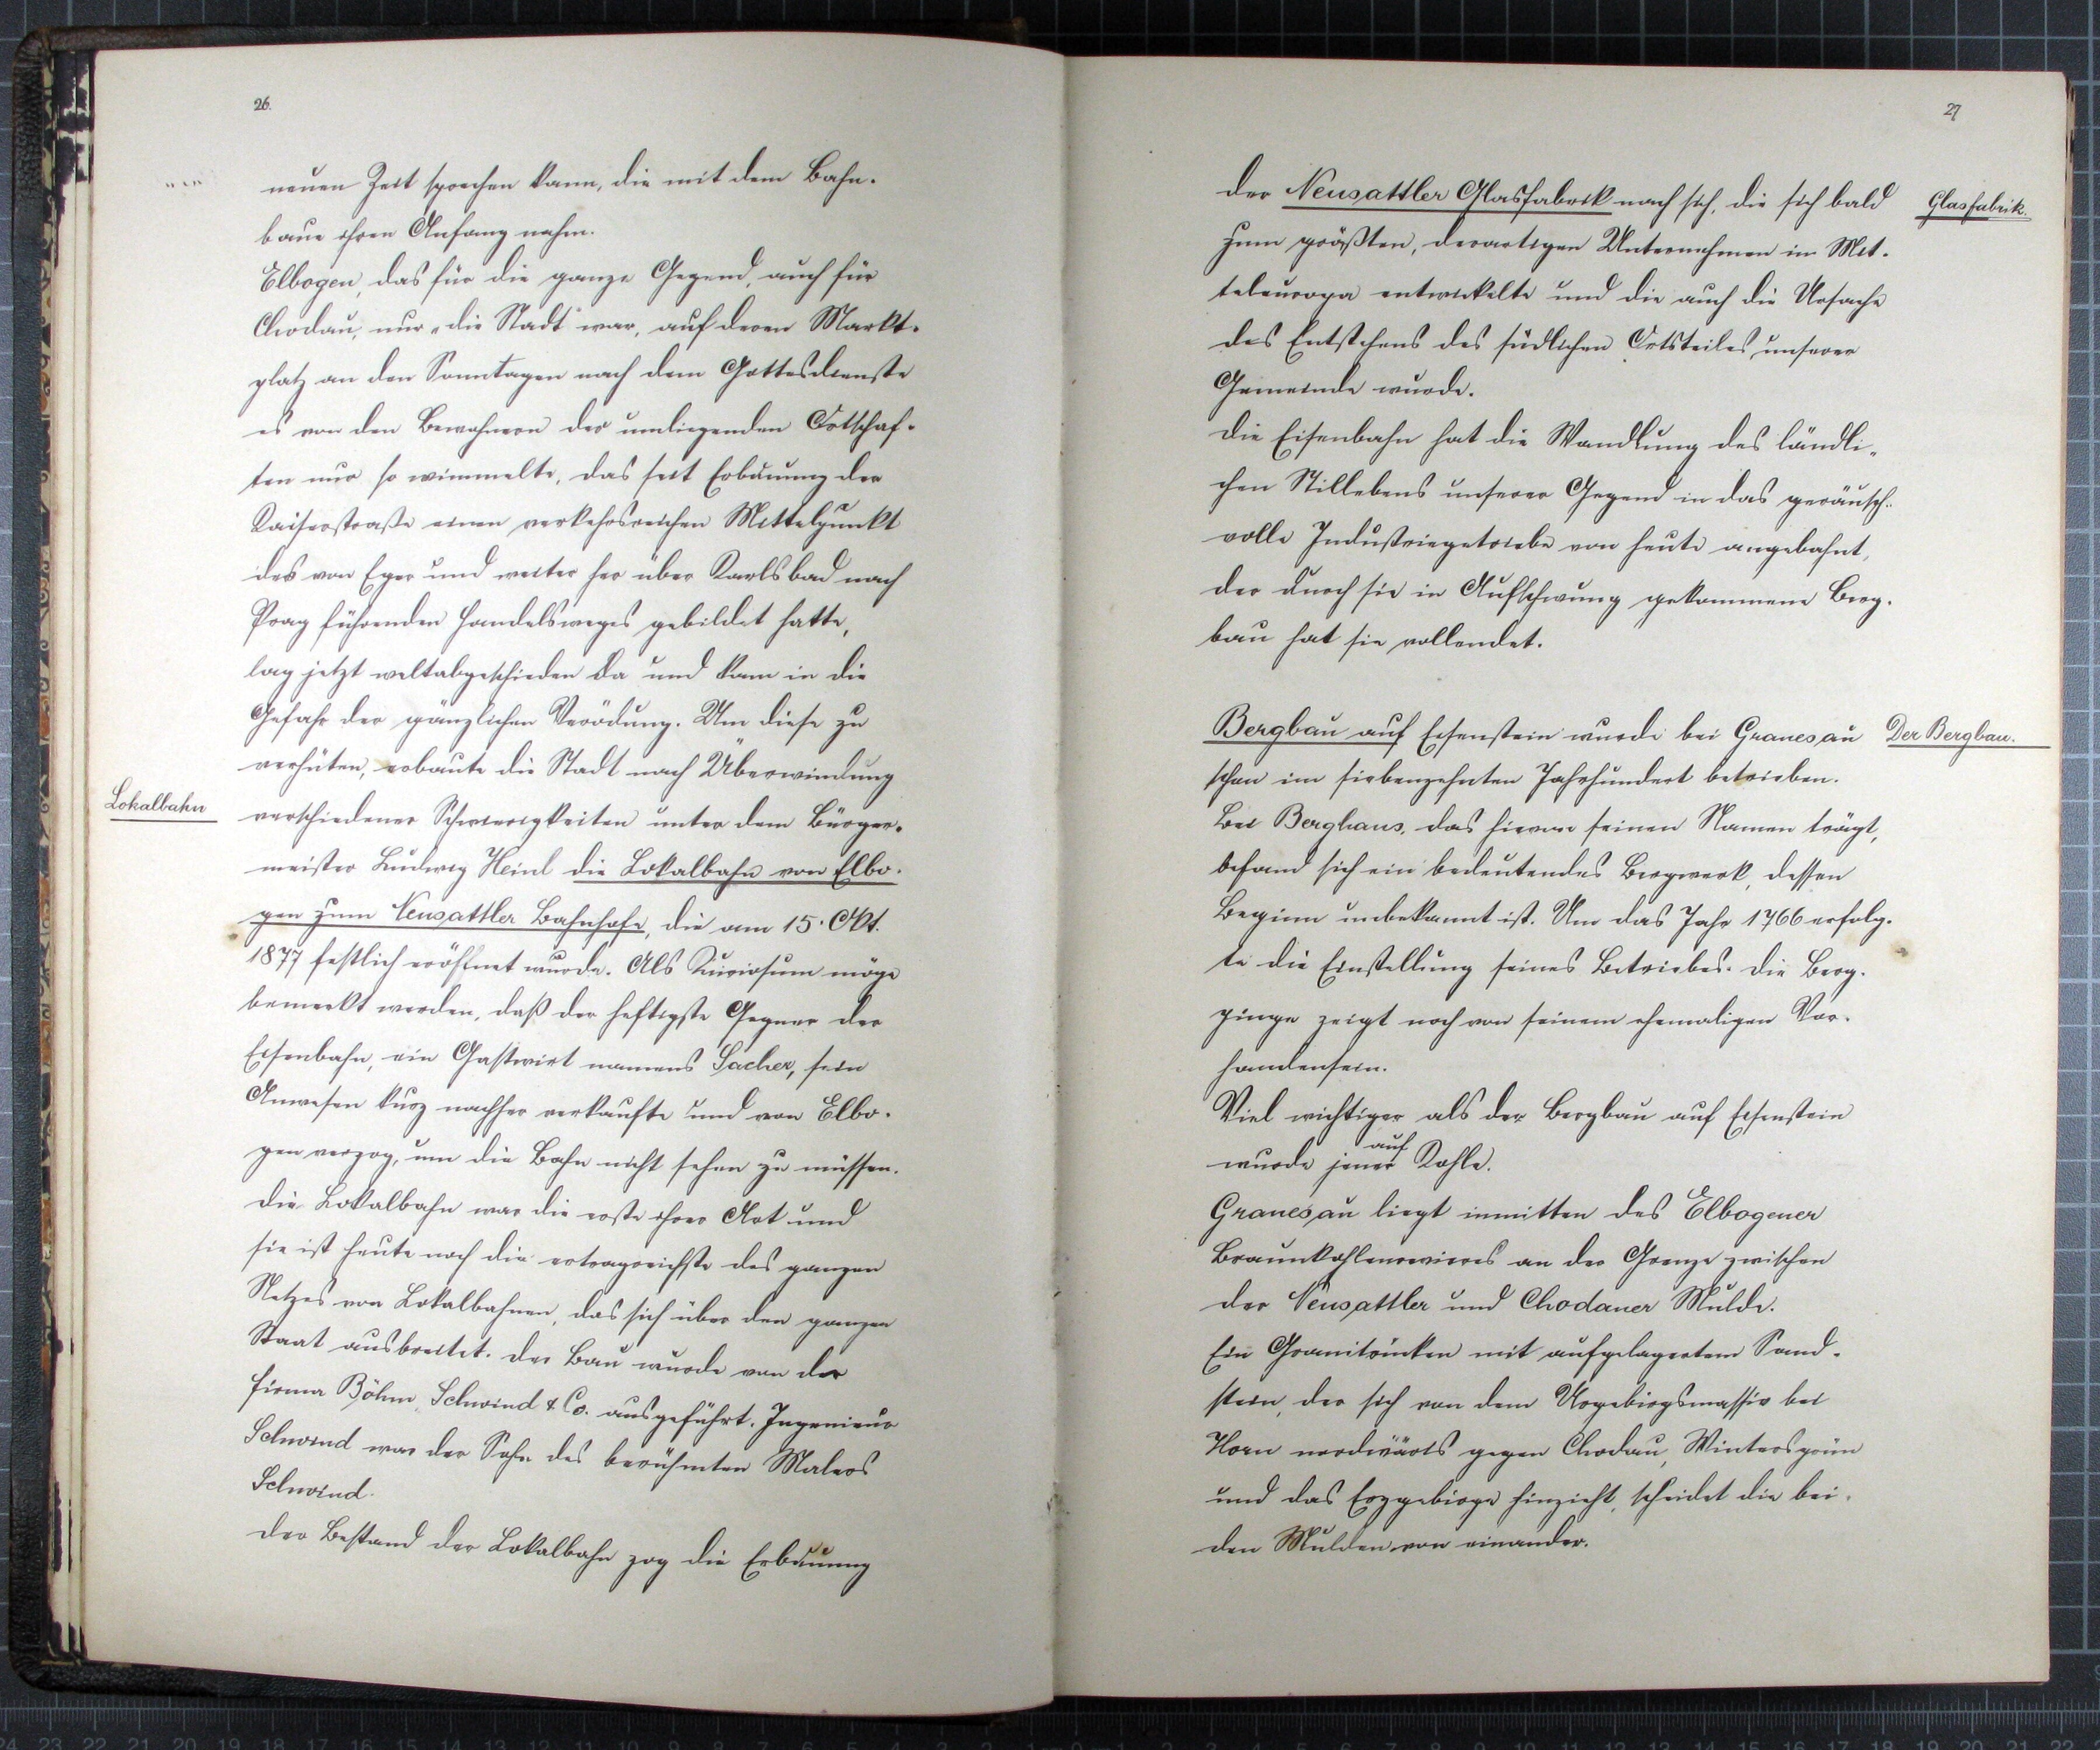 26.
neuen Zeit sprechen kann, die mit dem Bahn-
baue ihren Anfang nahm.
Elbogen, das für die ganze Gegend, auch für
Chodau, nur „die Stadt" war, auf deren Markt-
platz an den Sonntagen nach dem Gottesdienste
es von den Bewohnern der umliegenden Ortschaf-
ten nur so wimmelte, das seit Erbauung der
Kaiserstraße einen verkehrsreichen Mittelpunkt
des von Eger und weiter her über Karlsbad nach
Prag führenden Handelsweges gebildet hatte,
lag jetzt weltabgeschieden da und kam in die
Gefahr der gänzlichen Verödung. Um diese zu
verhüten, erbaute die Stadt nach Überwindung
Lokalbahn
verschiedener Schwierigkeiten unter dem Bürger-
meister Ludwig Heinl die Lokalbahn von Elbo-
gen zum Neusattler Bahnhofe, die am 15. Okt.
1877 festlich eröffnet wurde. Als Kuriosum möge
bemerkt werden, daß der heftigste Gegner der
Eisenbahn, ein Gastwirt namens Sacher, sein
Anwesen kurz nachher verkaufte und von Elbo-
gen verzog, um die Bahn nicht sehen zu müssen.
Die Lokalbahn war die erste ihrer Art und
sie ist heute noch die ertragreichste des ganzen
Netzes von Lokalbahnen, das sich über den ganzen
Staat ausbreitet. Der Bau wurde von der
Firma Böhm, Schwind & Co. ausgeführt. Ingenieur
Schwind war der Sohn des berühmten Malers
Schwind.
Der Bestand der Lokalbahn zog die Erbauung
27
der Neusattler Glasfabrik nach sich, die sich bald
Glasfabrik.
zum größten, derartigen Unternehmen in Mit-
teleuropa entwickelte und die auch die Ursache
des Entstehens des südlichen Ortsteiles unserer
Gemeinde wurde.
Die Eisenbahn hat die Wandlung des ländli-
chen Stillebens unserer Gegend in das geräusch-
volle Industriegetriebe von heute angebahnt,
der durch sie in Aufschwung gekommene Berg-
bau hat sie vollendet.
Bergbau auf Eisenstein wurde bei Granesau
Der Bergbau.
schon im siebenzehnten Jahrhundert betrieben.
Bei Berghaus, das hievon seinen Namen trägt,
befand sich ein bedeutendes Bergwerk, dessen
Beginn unbekannt ist. Um das Jahr 1766 erfolg-
te die Einstellung seines Betriebes. Die Berg-
pinge zeigt noch von seinem ehemaligen Vor-
handensein.
Viel wichtiger als der Bergbau auf Eisenstein
wurde jener auf Kohle.
Granesau liegt inmitten des Elbogener
Braunkohlenrevieres an der Grenze zwischen
der Neusattler und Chodauer Mulde.
Ein Granitrücken mit aufgelagertem Sand-
stein, der sich von dem Urgebirgsmassiv bei
Horn nordwärts gegen Chodau, Wintersgrün
und das Erzgebirge hinzieht, scheidet die bei-
den Mulden von einander.